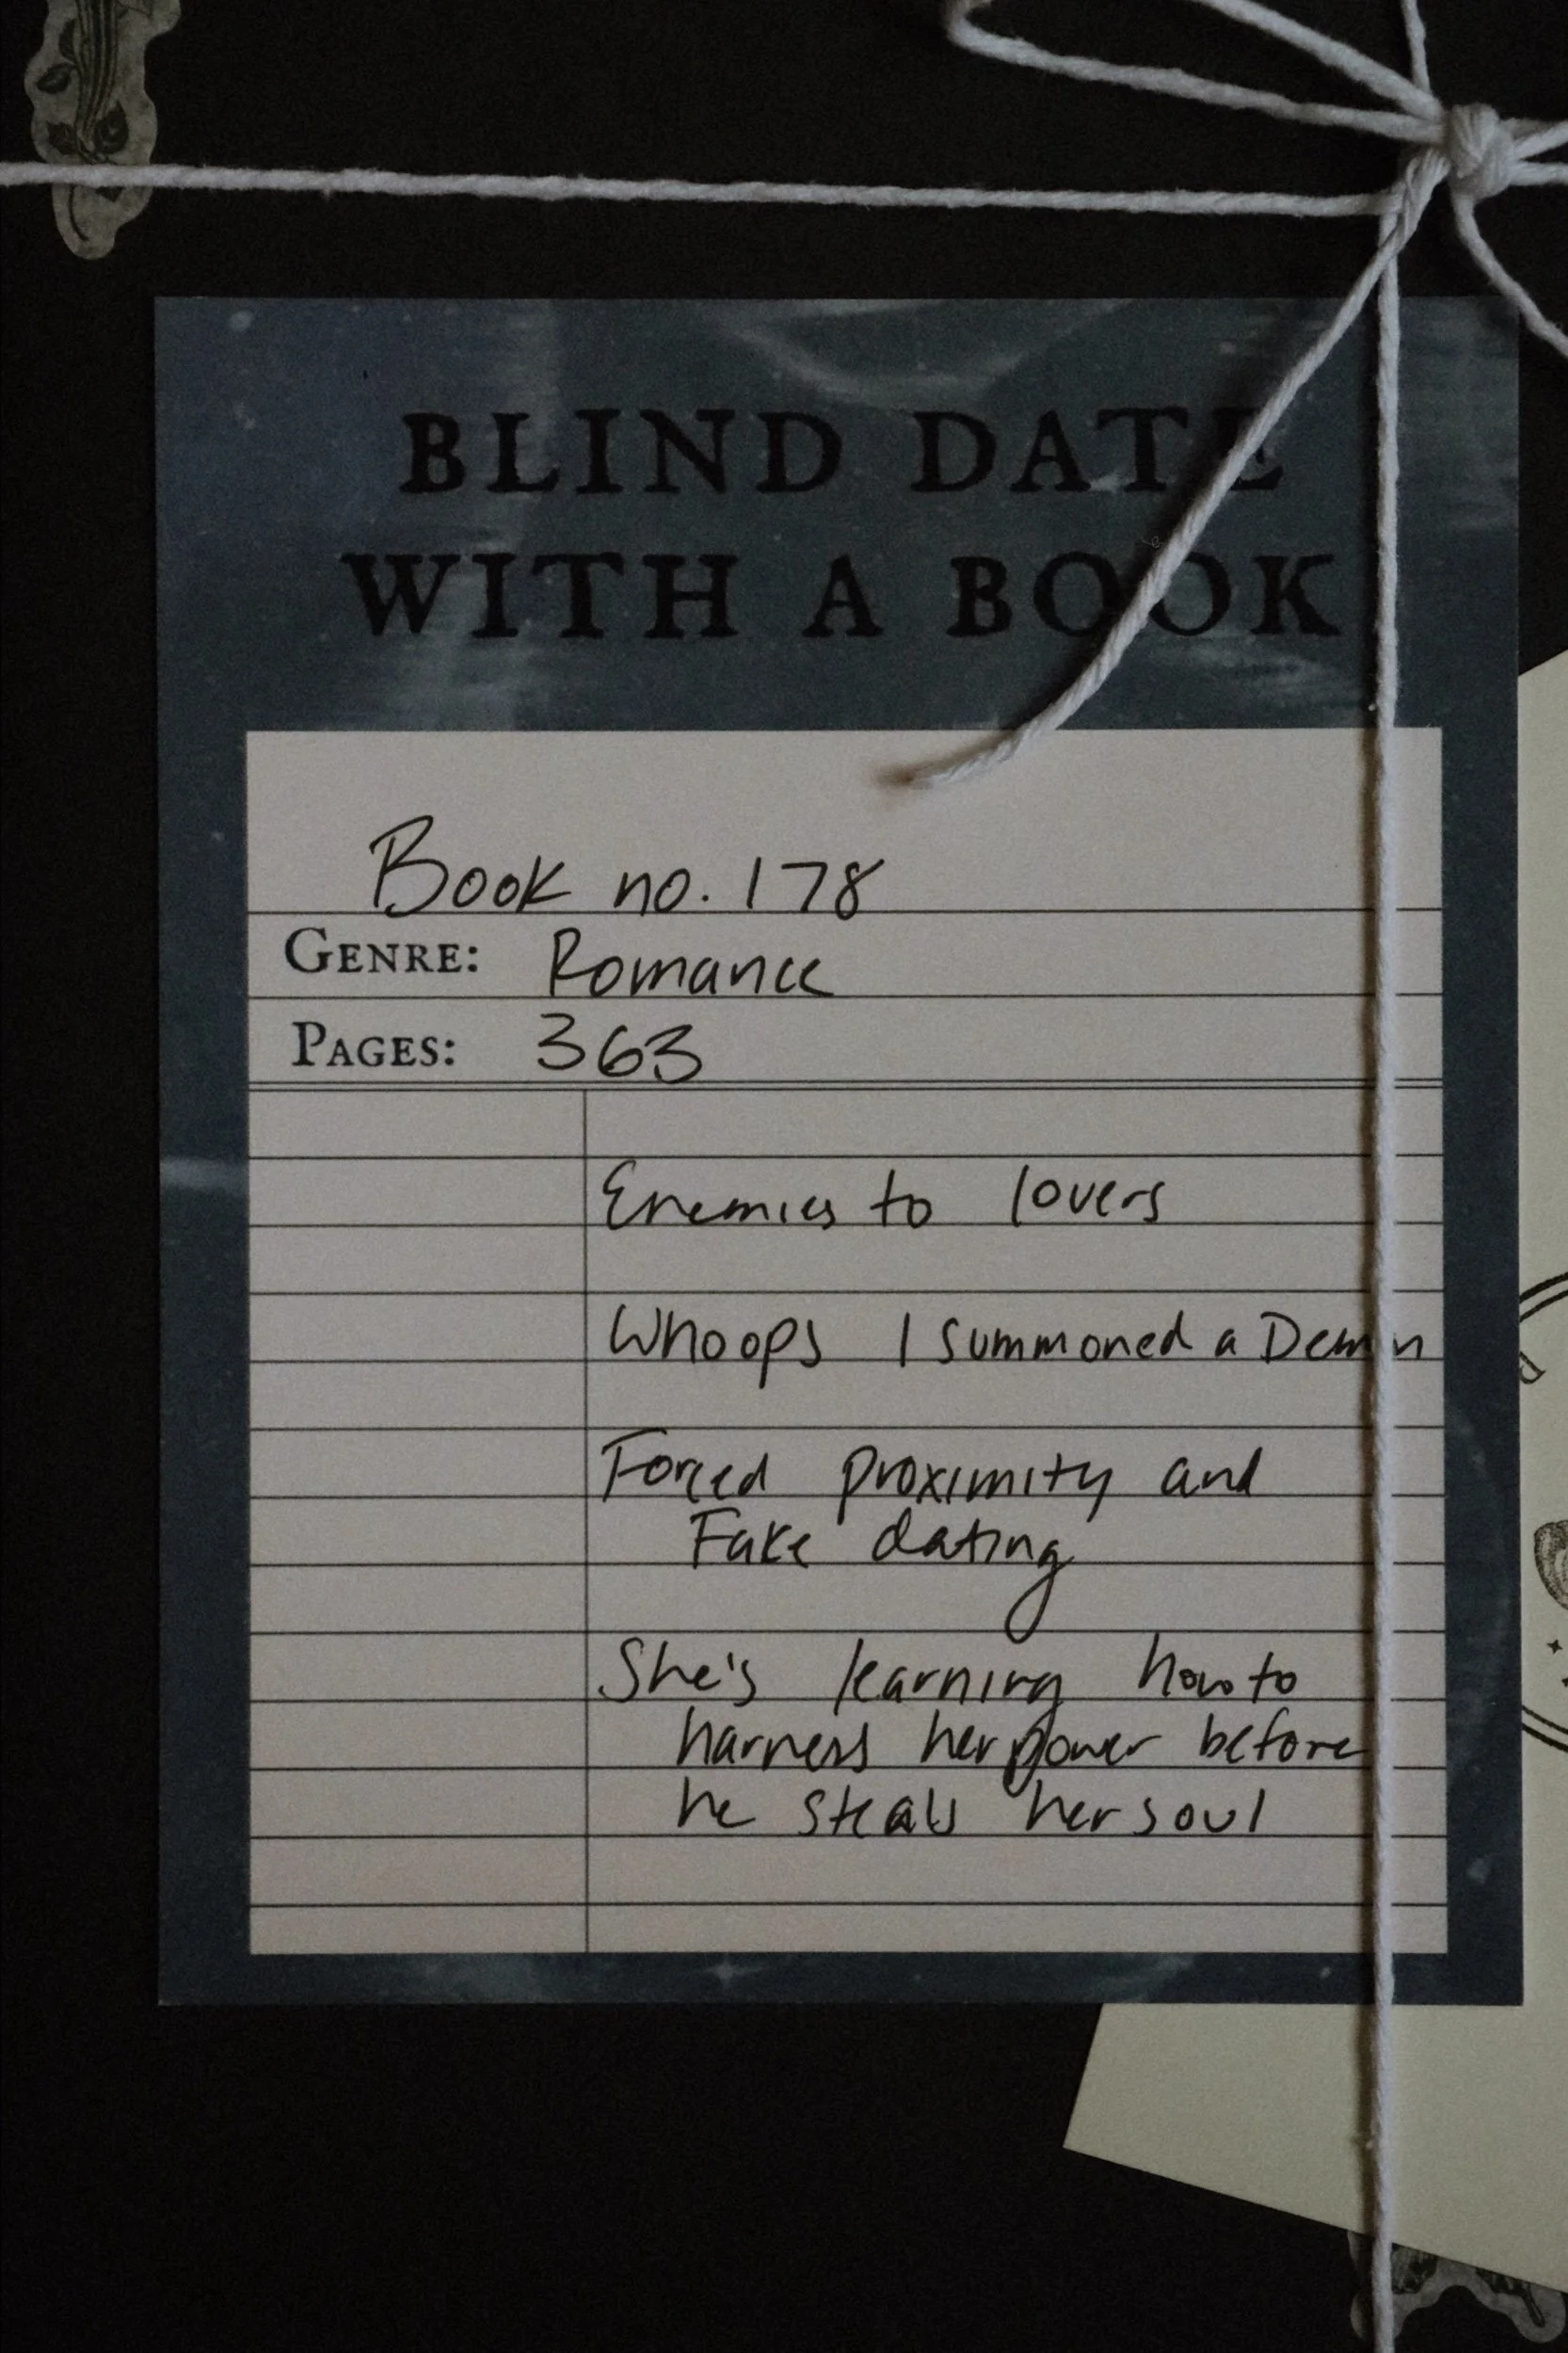 BLIND DATE
WITH A BOOK
Book no. 178
GENRE: Romance
PAGES: 363
Enemies to lovers
Whoops I summoned a Demon
Forced proximity and
Fake dating
She's learning how to
harness her power before
he steals her soul